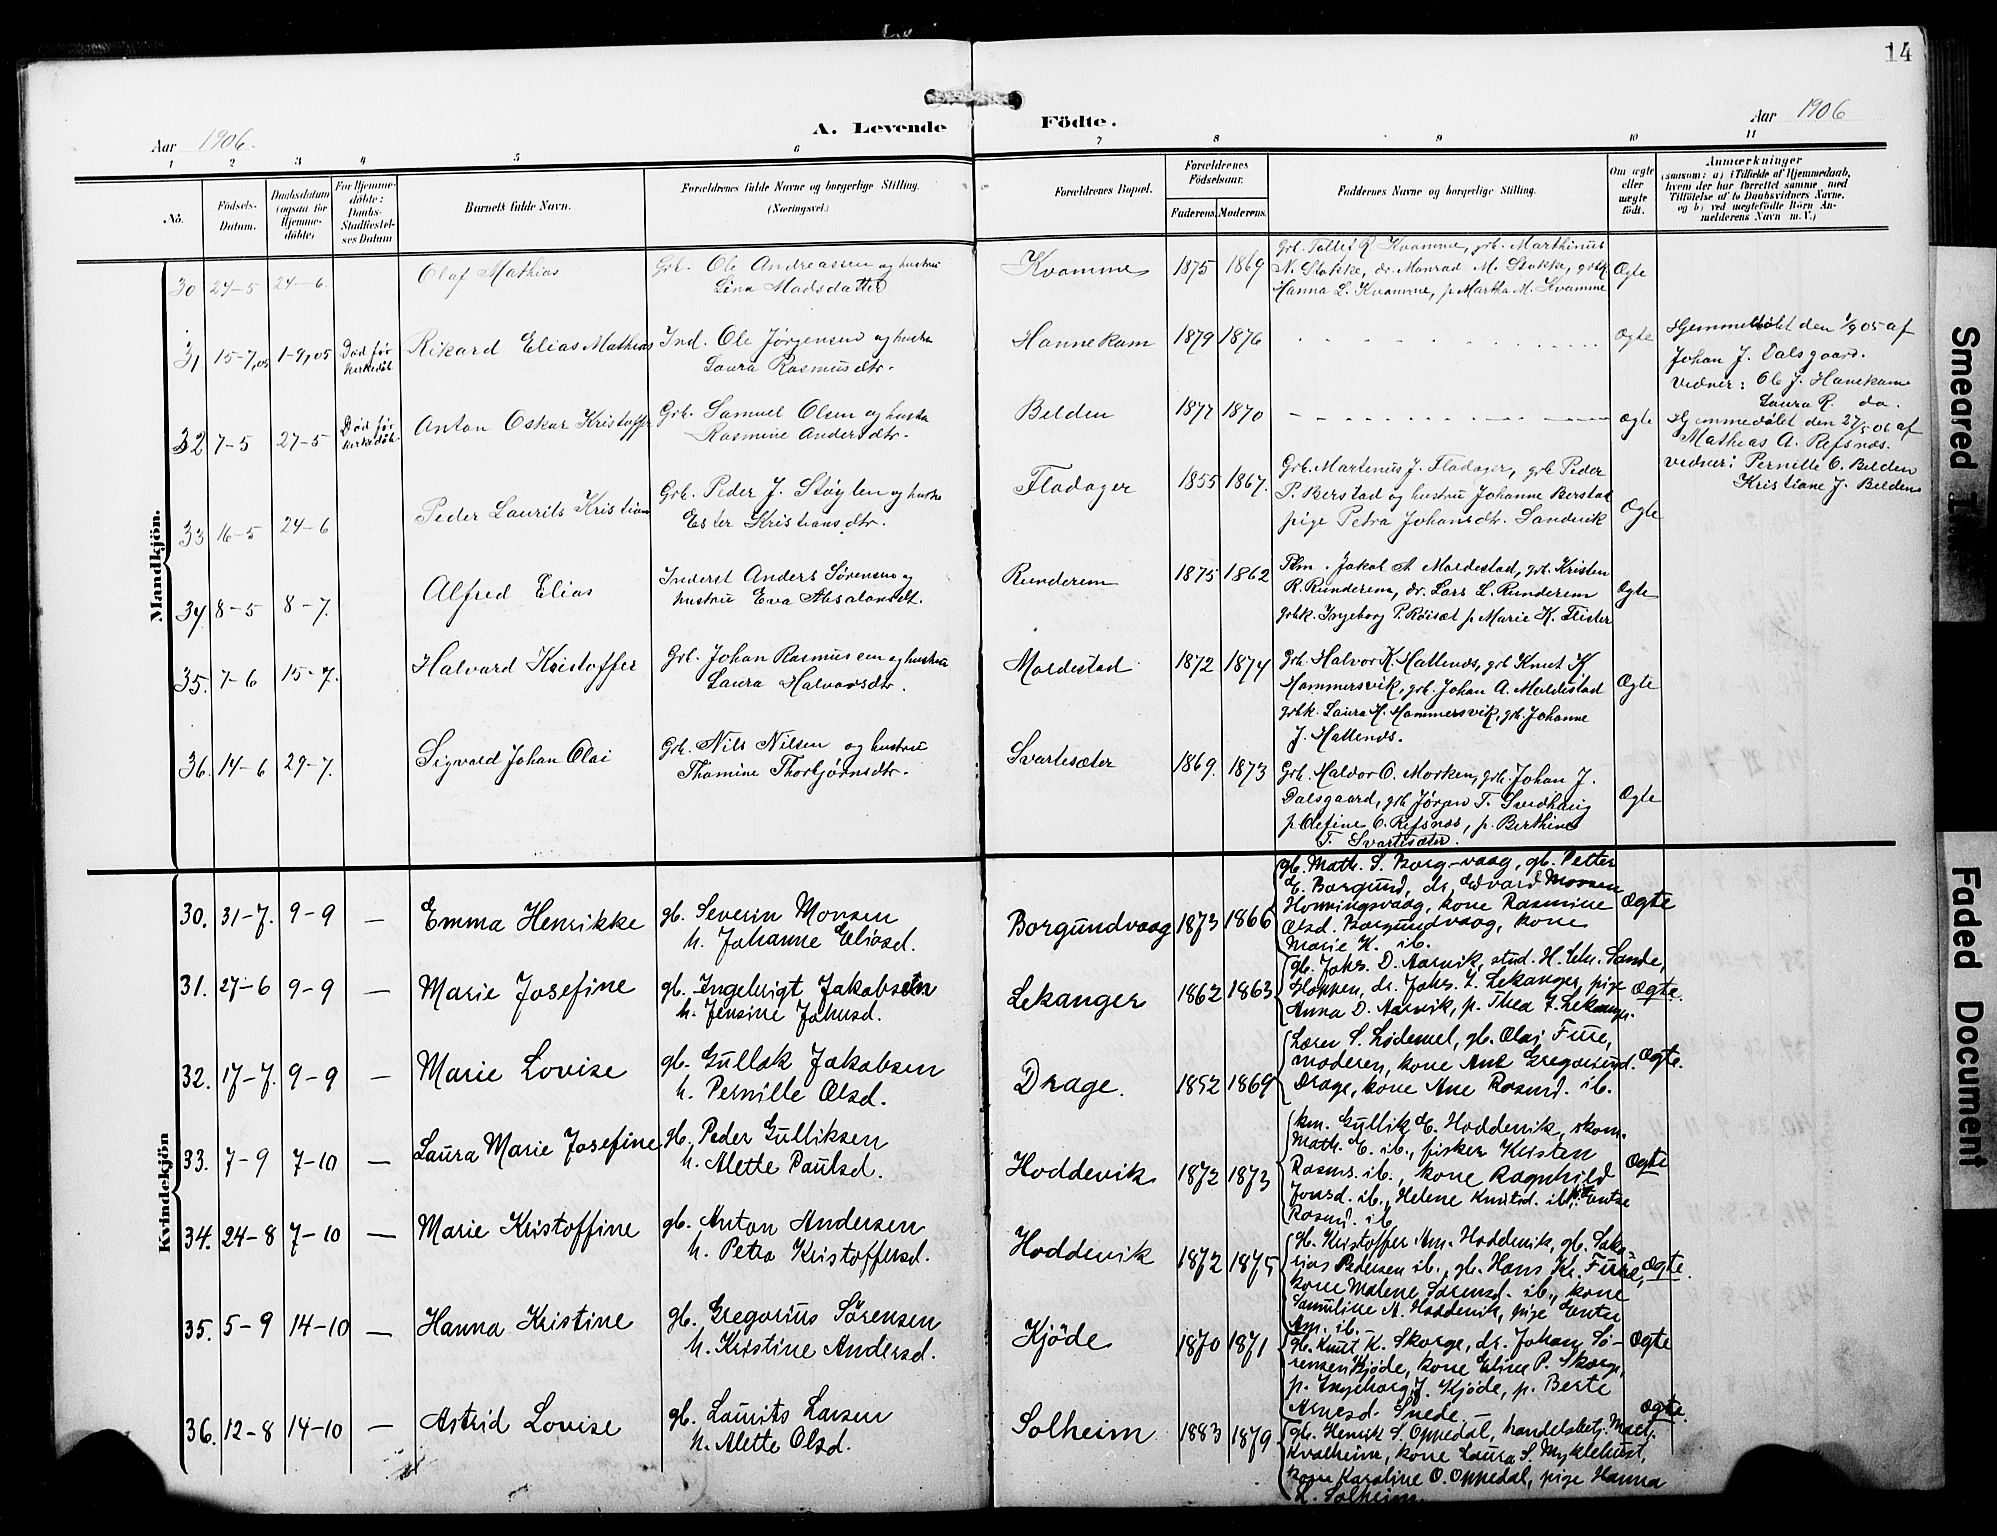 14
Aar 1906.
A. Levende Födte.
Aar 1906
1 2 3 4 5 6 7 8 9 10 11
No.
Födsels-Datum.
Daabsdatum (ogsaa for Hjemme-döbte)
For Hjemme-döbte: Daabs-Stadfæstel-ses Datum
Barnets fulde Navn.
Forældrenes fulde Navne og borgerlige Stilling.
(Næringsvei.)
Forældrenes Bopæl.
Forældrenes Födselsaar.
Faderens. Moderens.
Faddernes Navne og borgerlige Stilling.
Om ægte eller uægte födt.
Anmærkninger
(saasom: a) i Tilfælde af Hjemmedaab,
hvem der har forrettet samme med
Tilföielse af to Daabsvidners Navne,
og b) ved uægtefödte Börn An-
melderens Navn m. V.)
Mandkjön.
30 24-5 24-6. Olaf Mathias
Grb. Ole Andreassen og hustru
Lina Madsdatter
Kvamme 1875 1869
Grb. Tollef R. Kvamme, grb. Marthinus
N. Stokke, dr. Monrad M. Stokke, grbk
Hanna L. Kvamme, p Martha M. Kvamme
Ægte
31. 15-7,05 1-9,05 Død før kirkedåb Rikard Elias Mathias
Ind. Ole Jørgensen og hustru
Laura Rasmusdtr.
Hannekam 1879 1876
Ægte
Hjemmedøbt den 1/9 05 af
Johan J. Dalsgaard.
Vidner: Ole J. Hanekam
Laura R. do.
32 7-5 27-5 Død før kirkedåb Anton Oskar Kristoffer
Grb. Samuel Olsen og hustru
Rasmine Andersdtr.
Belden 1877 1870
Ægte
Hjemmedøbt den 27/5 06 af
Mathias A. Refsnes.
vidner: Pernille O. Belden
Kristiane J. Belden
33 16-5 24-6 Peder Laurits Kristian
Grb. Peder J. Støylen og hustru
Ester Kristiansdtr.
Fladager 1855 1867.
Grb. Martinus J. Fladager, grb Peder
P. Berstad og hustru Johanne Berstad
pige Petra Johansdtr. Sandvik
Ægte
34. 8-5 8-7. Alfred Elias
Inderst Anders Sørensen og
hustru Eva Absalonsdt.
Runderem 1875 1862
Pkm. Jakob A Moldestad, grb. Kristen
R. Runderem, dr. Lars L. Runderem
grbk. Ingeborg P. Røiset p Marie K. Flister
Ægte
35. 7-6 15-7. Halvard Kristoffer
Grb. Johan Rasmussen og hustru
Laura Halvorsdtr.
Moldestad 1872 1874
Grb. Halvor K. Hallenes, grb Knut K
Hammersvik, grb. Johan A. Moldestad
grbk. Laura H. Hammersvik, grb. Johanne
J. Hallenes.
Ægte
36. 14-6 29-7. Sigvald Johan Olai
Grb. Nils Nilsen og hustru
Thomine Thorbjørnsdtr.
Svartesæter 1869. 1873
Grb. Haldor O. Morken, grb. Johan J.
Dalsgaard, grb Jørgen T. Svidhaug
p Olefine O. Refsnes, p. Berthine
T. Svartesæter.
Ægte
Kvindekjön
30. 31-7. 9-9 — Emma Henrikke
gb. Severin Monsen
h. Johanne Eliasd.
Borgundvaag 1873 1866
gb. Math. S. Borg-vaag, gb. Petter
E. Borgund, dr. Edvard Monsen
Honningsvaag, kone Rasmine
Olsd. Borgundvaag, kone
Marie K. ib.
Ægte
31. 27-6 9-9 — Marie Josefine
gb. Ingebrigt Jakobsen
h. Jensine Johnsd.
Lekanger 1862 1863
gb. Johs. D. Aarvik, stud. H. Chr. Sande,
Gloppen, dr. Johs. I. Lekanger, pige
Anna D. Aarvik, p. Thea I. Lekanger.
Ægte.
32. 17-7. 9-9 — Marie Lovise
gb. Gullak Jakobsen
h. Pernille Olsd.
Drage. 1852 1869
Lærer S. Lødemel, gb. Olai Fure,
moderen, kone Ane Gregoriusd.
Drage, kone Ane Rasmd. ib.
Ægte.
33. 7-9 7-10 — Laura Marie Josefine
gb. Peder Gulliksen
h. Alette Paulsd.
Hoddevik 1872 1873
km. Gullik E. Hoddevik, skom.
Math. E. ib., fisker Kristen
Rasms. ib., kone Ragnhild
Jonsd. ib., Helene Knutsd. ib., Eentse
Rasmd. ib.
Ægte
34. 24-8 7-10 — Marie Kristoffine
gb. Anton Andersen
h. Petra Kristoffersd.
Hoddevik 1872 1875
gb. Kristoffer Am. Hoddevik, gb. Saka-
rias Pedersen ib., gb. Hans Kr. Fure,
kone Malene Sørensd. ib., kone
Samuline A. Hoddevik, pige Eentse
Am. ib.
Ægte.
35. 5-9 14-10 — Hanna Kristine
gb. Gregorius Sörensen
h. Kristine Andersd.
Kjöde 1870 1871
gb. Knut K. Skorge, dr. Johan Sö-
rensen Kjöde, kone Eline P. Skorge,
p. Ingeborg J. Kjöde, p. Berte
Arnesd. Snede
Ægte
36. 12-8 14-10 — Astrid Lovise
gb. Laurits Larsen
h. Alette Olsd.
Solheim 1883 1879
gb. Henrik S. Oppedal, handelsbetj. Mart.
Kvalheim, kone Laura S. Myklebust,
kone Karoline O. Oppedal, pige Hanna
L. Solheim.
Ægte.
Smeared
Faded Document